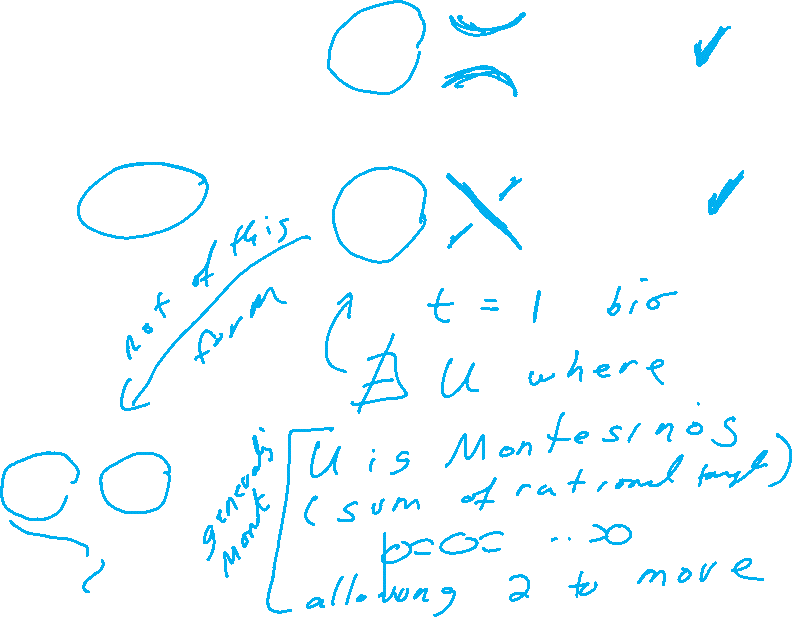 not of this
form
t = 1 bio
∄ U where
generaliz
Mont
U is Montesinos
(sum of rational tangle)
allowing 2 to move